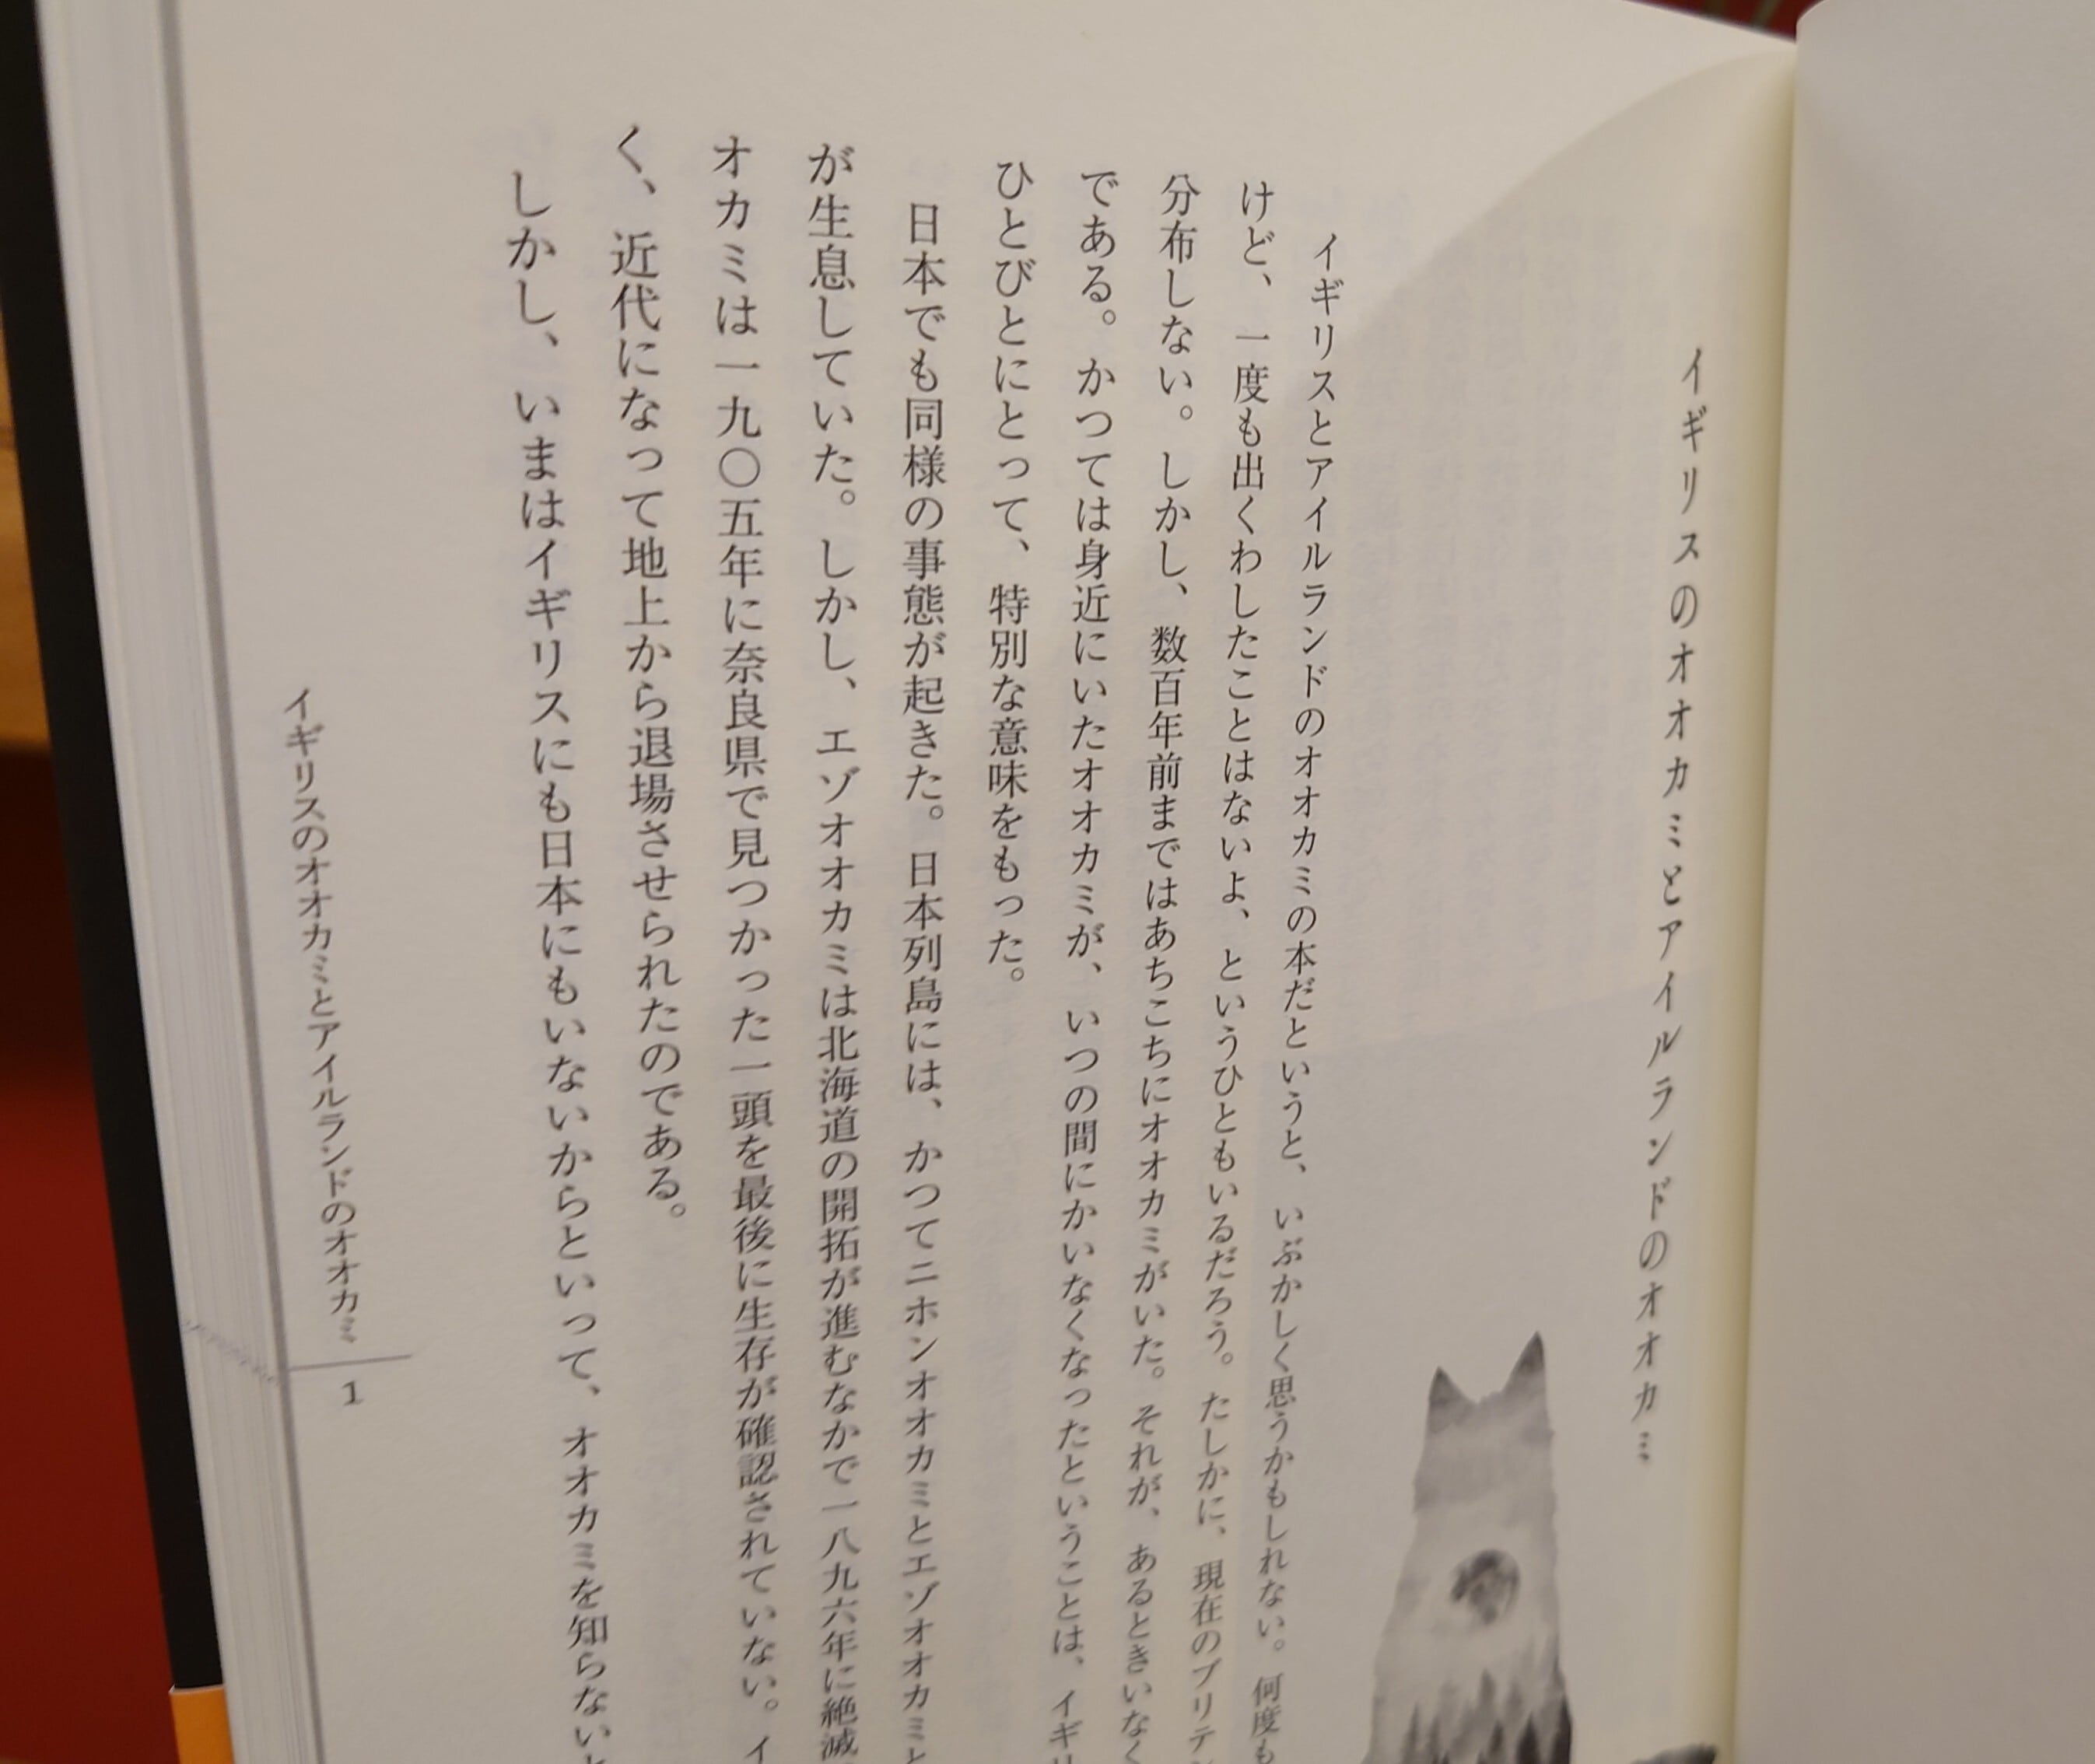 イギリスのオオカミとアイルランドのオオカミ
イギリスとアイルランドのオオカミの本だというと、いぶかしく思うかもしれない。何度も
けど、一度も出くわしたことはないよ、というひともいるだろう。たしかに、現在のブリテン
分布しない。しかし、数百年前まではあちこちにオオカミがいた。それが、あるときいなく
である。かつては身近にいたオオカミが、いつの間にかいなくなったということは、イギリ
ひとびとにとって、特別な意味をもった。
日本でも同様の事態が起きた。日本列島には、かつてニホンオオカミとエゾオオカミと
が生息していた。しかし、エゾオオカミは北海道の開拓が進むなかで一八九六年に絶滅
オカミは一九〇五年に奈良県で見つかった一頭を最後に生存が確認されていない。イ
く、近代になって地上から退場させられたのである。
しかし、いまはイギリスにも日本にもいないからといって、オオカミを知らないと
イギリスのオオカミとアイルランドのオオカミ
1